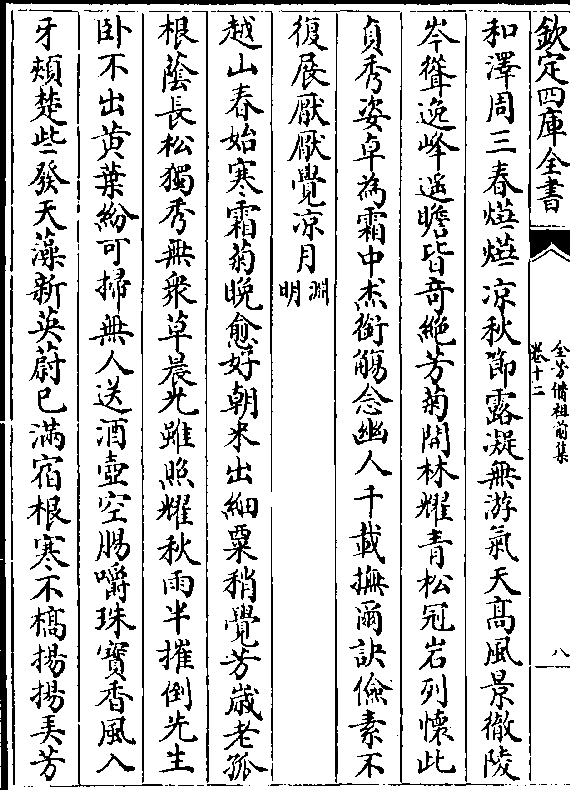 欽定四庫全書
全芳備祖前集
卷十二
八
和澤周三春㷸㷸涼秋節露凝無游氣天高風景徹陵
岑聳逸峰遥瞻皆奇絶芳菊開林耀青松冠岩列懷此
貞秀姿卓為霜中杰銜觴念幽人千載撫爾訣儉素不
復展厭厭覺涼月淵明
越山春始寒霜菊晚愈好朝來出細粟稍覺芳歳老孤
根蔭長松獨秀無衆草晨光雖照耀秋雨半摧倒先生
卧不出黄葉紛可掃無人送酒壺空腸嚼珠寳香風入
牙頰楚些發天藻新英蔚已滿宿根寒不槁揚揚弄芳